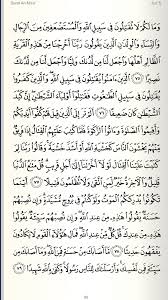 Surah An-Nisa'
Juz' 5
وَمَا لَكُمْ لَا تُقَٰتِلُونَ فِى سَبِيلِ ٱللَّهِ وَٱلْمُسْتَضْعَفِينَ مِنَ ٱلرِّجَالِ
وَٱلنِّسَآءِ وَٱلْوِلْدَٰنِ ٱلَّذِينَ يَقُولُونَ رَبَّنَآ أَخْرِجْنَا مِنْ هَٰذِهِ ٱلْقَرْيَةِ
ٱلظَّالِمِ أَهْلُهَا وَٱجْعَل لَّنَا مِن لَّدُنكَ وَلِيًّا وَٱجْعَل لَّنَا مِن لَّدُنكَ
نَصِيرًا ٧٥ ٱلَّذِينَ ءَامَنُوا۟ يُقَٰتِلُونَ فِى سَبِيلِ ٱللَّهِ وَٱلَّذِينَ كَفَرُوا۟
يُقَٰتِلُونَ فِى سَبِيلِ ٱلطَّٰغُوتِ فَقَٰتِلُوٓا۟ أَوْلِيَآءَ ٱلشَّيْطَٰنِ إِنَّ كَيْدَ
ٱلشَّيْطَٰنِ كَانَ ضَعِيفًا ٧٦ أَلَمْ تَرَ إِلَى ٱلَّذِينَ قِيلَ لَهُمْ كُفُّوٓا۟ أَيْدِيَكُمْ
وَأَقِيمُوا۟ ٱلصَّلَوٰةَ وَءَاتُوا۟ ٱلزَّكَوٰةَ فَلَمَّا كُتِبَ عَلَيْهِمُ ٱلْقِتَالُ إِذَا فَرِيقٌ
مِّنْهُمْ يَخْشَوْنَ ٱلنَّاسَ كَخَشْيَةِ ٱللَّهِ أَوْ أَشَدَّ خَشْيَةً وَقَالُوا۟ رَبَّنَا
لِمَ كَتَبْتَ عَلَيْنَا ٱلْقِتَالَ لَوْلَآ أَخَّرْتَنَآ إِلَىٰٓ أَجَلٍ قَرِيبٍ قُلْ مَتَٰعُ ٱلدُّنْيَا
قَلِيلٌ وَٱلْءَاخِرَةُ خَيْرٌ لِّمَنِ ٱتَّقَىٰ وَلَا تُظْلَمُونَ فَتِيلًا ٧٧ أَيْنَمَا
تَكُونُوا۟ يُدْرِككُّمُ ٱلْمَوْتُ وَلَوْ كُنتُمْ فِى بُرُوجٍ مُّشَيَّدَةٍ وَإِن تُصِبْهُمْ
حَسَنَةٌ يَقُولُوا۟ هَٰذِهِۦ مِنْ عِندِ ٱللَّهِ وَإِن تُصِبْهُمْ سَيِّئَةٌ يَقُولُوا۟
هَٰذِهِۦ مِنْ عِندِكَ قُلْ كُلٌّ مِّنْ عِندِ ٱللَّهِ فَمَالِ هَٰٓؤُلَآءِ ٱلْقَوْمِ لَا يَكَادُونَ
يَفْقَهُونَ حَدِيثًا ٧٨ مَّآ أَصَابَكَ مِنْ حَسَنَةٍ فَمِنَ ٱللَّهِ وَمَآ أَصَابَكَ مِن
سَيِّئَةٍ فَمِن نَّفْسِكَ وَأَرْسَلْنَٰكَ لِلنَّاسِ رَسُولًا وَكَفَىٰ بِٱللَّهِ شَهِيدًا ٧٩
90